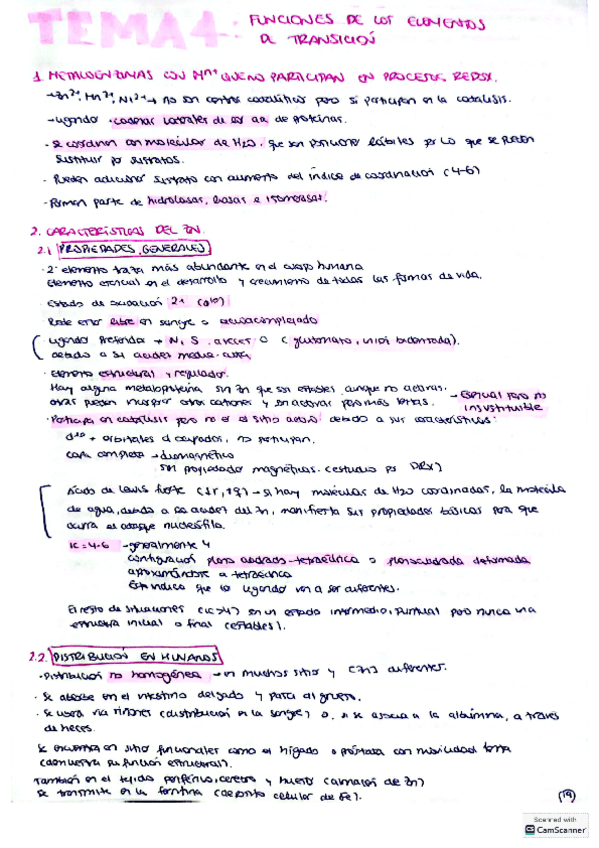 TEMA 4: FUNCIONES DE LOS ELEMENTOS
DE TRANSICIÓN
1. METALOENZIMAS CON Mn+ QUE NO PARTICIPAN EN PROCESOS REDOX.
→ Zn2+, Mn2+, Ni2+ → no son centros catalíticos pero si participan en la catálisis.
→ ligando · cadenas laterales de los aa de proteínas.
· Se coordinan con moléculas de H2O, que son posiciones lábiles por lo que se pueden
sustituir por sustratos.
· Pueden adicionar sustrato con aumento del índice de coordinación (4-6)
· Forman parte de hidrolasas, liasas e isomerasas.
2. CARACTERÍSTICAS DEL ZN.
2.1 PROPIEDADES GENERALES
· 2º elemento traza más abundante en el cuerpo humano
Elemento esencial en el desarrollo y crecimiento de todas las formas de vida.
· Estado de oxidación 2+ (d10)
Puede estar libre en sangre o acuocomplejado
ligando preferido → N, S, a veces O (glutamato, unión bidentada).
debido a su acidez media
· Elemento estructural y regulador.
Hay alguna metaloproteína sin Zn que son estables aunque no activas.
otras pueden incorporar otros cationes y ser activas pero más lentas. → Esencial pero no
insustituible
· Participa en catálisis pero no es el sitio activo debido a sus características:
d10 → orbitales d ocupados, no participan.
capa completa → diamagnético
sin propiedades magnéticas. (estudio por DRX)
Ácido de Lewis fuerte → si hay moléculas de H2O coordinadas, la molécula
de agua, debido a la acidez del Zn, manifiesta sus propiedades básicas para que
ocurra el ataque nucleófilo.
IC = 4-6 → generalmente 4
configuración plano cuadrado-tetraédrica o planocuadrada deformada
aproximándose a tetraédrica
Esto indica que los ligandos van a ser diferentes.
El resto de situaciones (IC>4) son un estado intermedio, puntual pero nunca una
estructura inicial o final (estables).
2.2. DISTRIBUCIÓN EN HUMANOS
· Distribución no homogénea → en muchos sitios y [Zn] diferentes.
· Se absorbe en el intestino delgado y pasa al grueso.
· Se vía riñones (distribución en la sangre) o, si se asocia a la albúmina, a través
de heces.
Se encuentra en sitios funcionales como el hígado o próstata con movilidad lenta
(demuestra su función estructural).
También en el tejido periférico, cerebro y hueso
Se transmite en la ferritina (depósito celular de Fe).
(19)
Scanned with
CamScanner